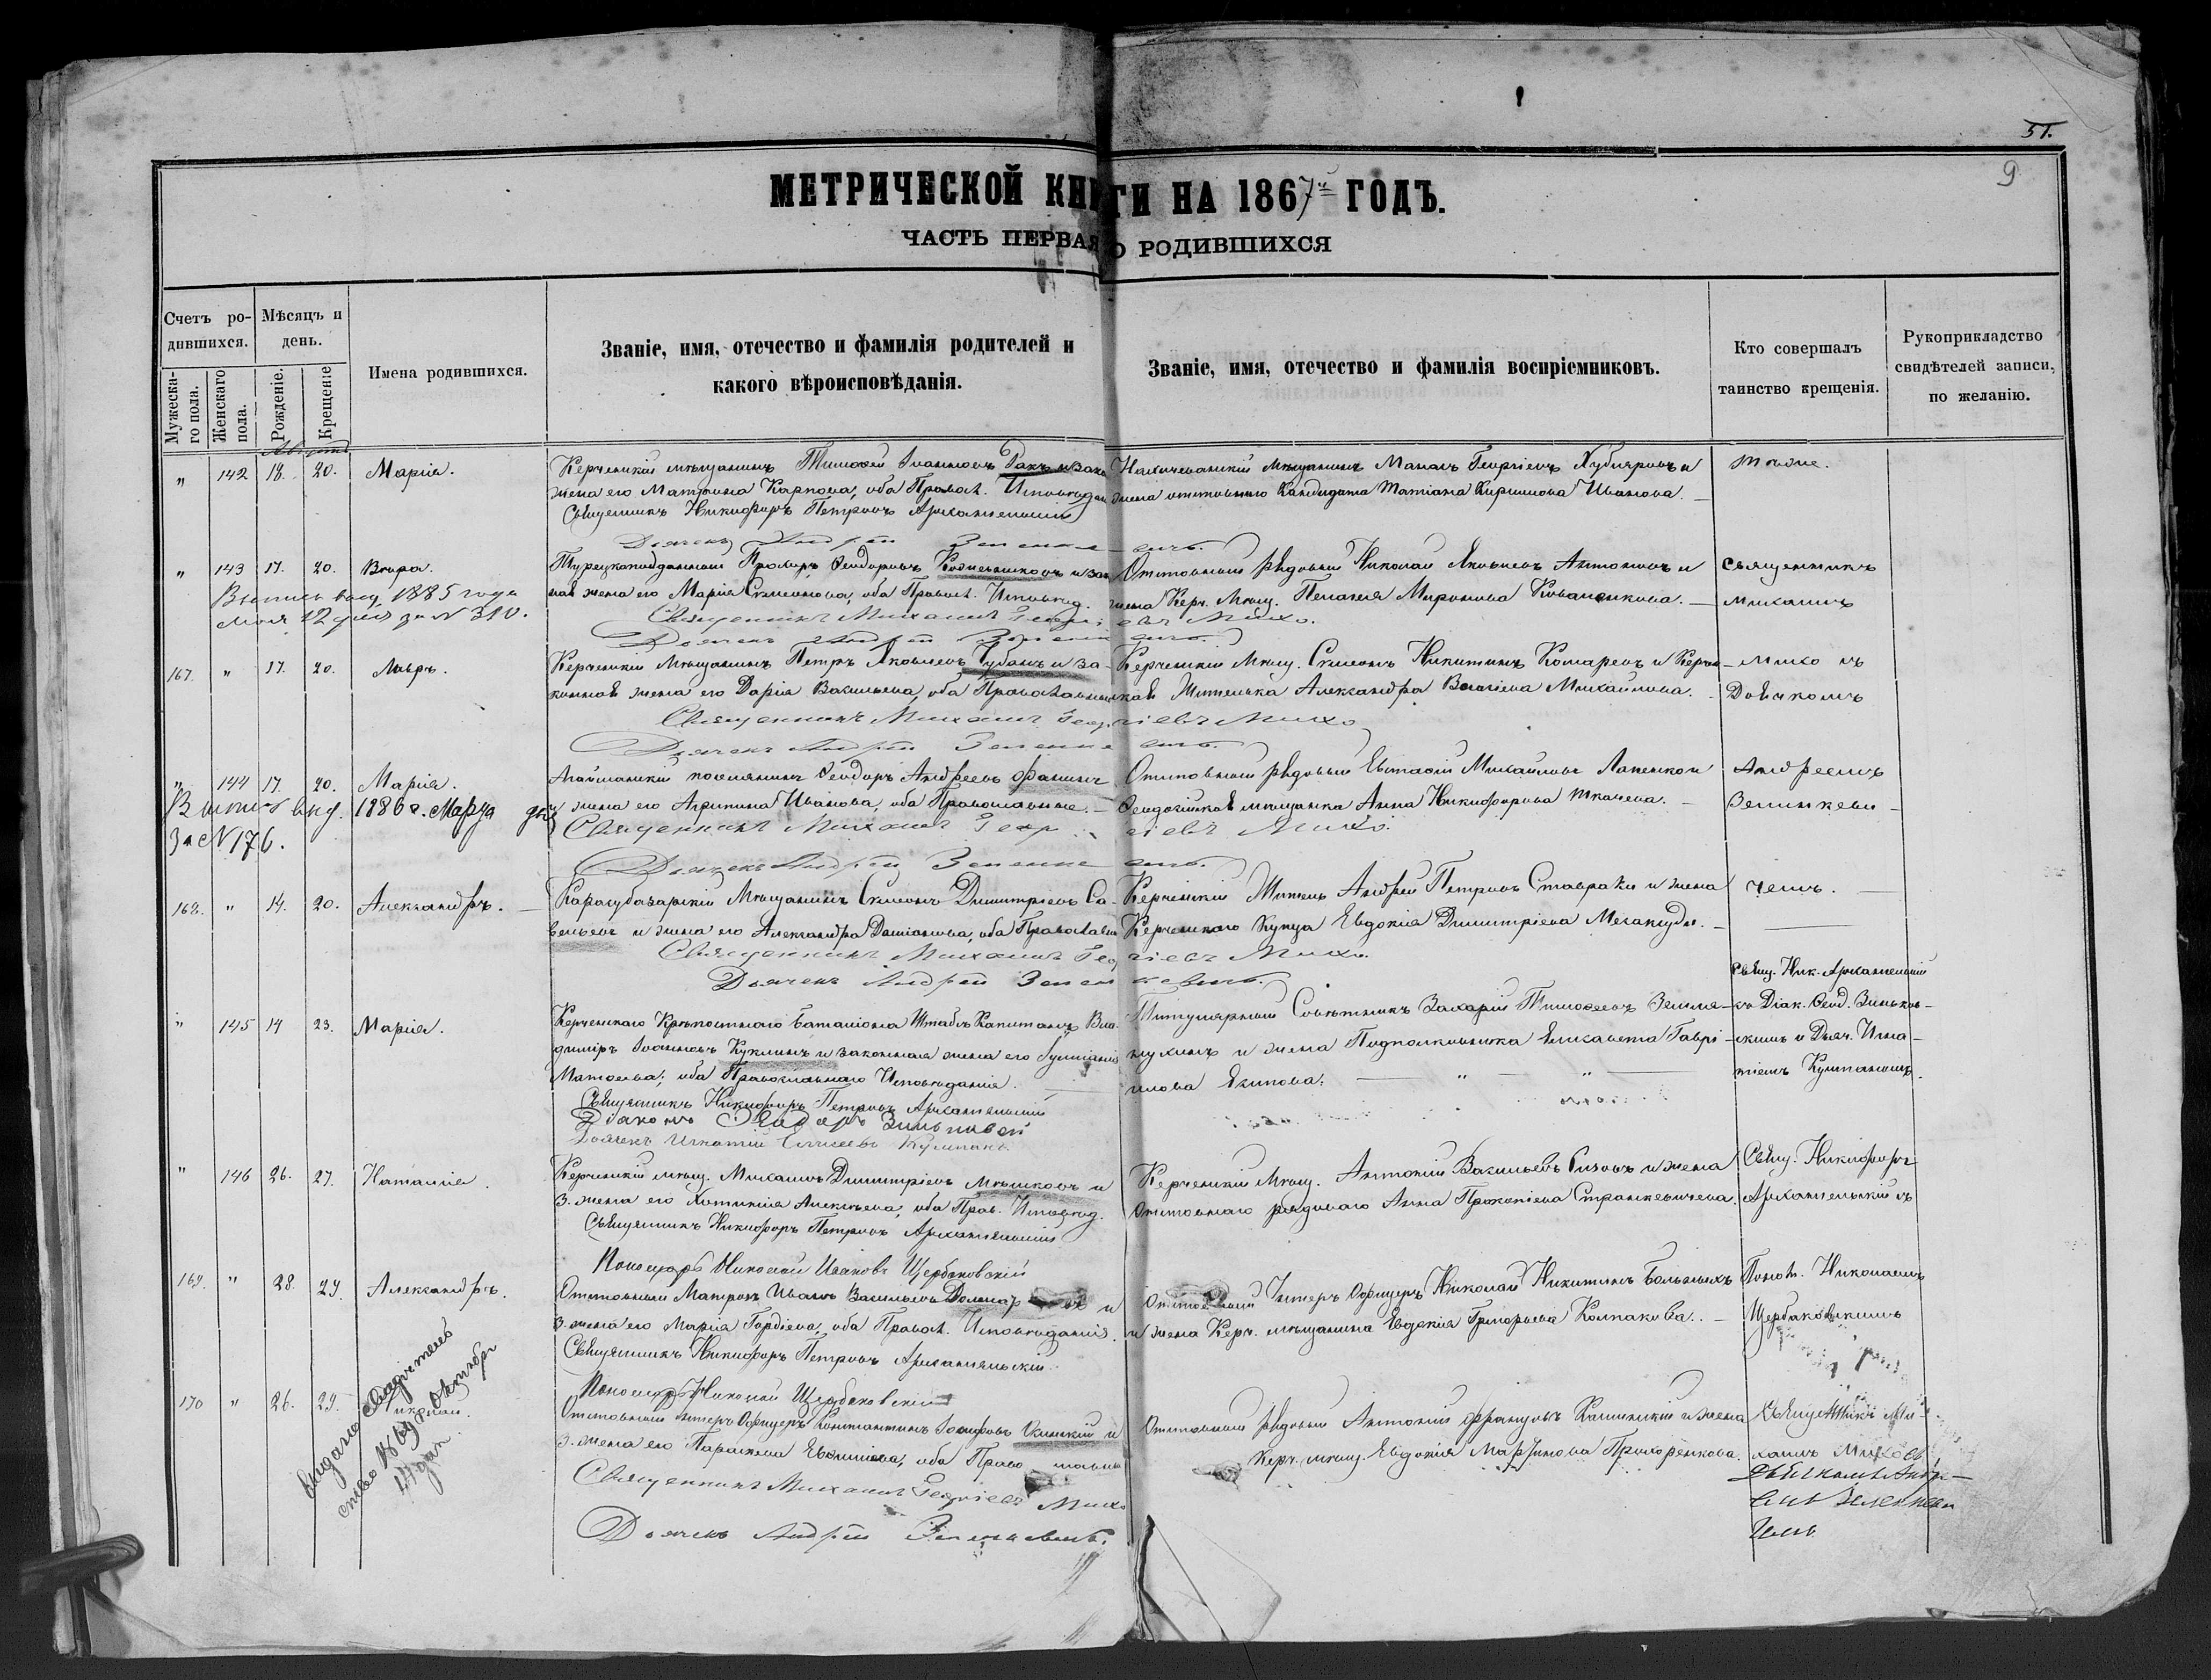 51.
9
МЕТРИЧЕСКОЙ КНИГИ НА 1867й ГОДЪ.
ЧАСТЬ ПЕРВАЯ О РОДИВШИХСЯ
Счетъ родившихся.
Мужескаго пола.
Женскаго пола.
Мѣсяцъ и день.
Рожденіе.
Крещеніе
Имена родившихся.
Званіе, имя, отечество и фамилія родителей и
какого вѣроисповѣданія.
Званіе, имя, отечество и фамилія воспріемниковъ.
Кто совершалъ
таинство крещенія.
Рукоприкладство
свидѣтелей записи,
по желанію.
Августъ
" 142 18. 20. Марія.
Керченскій мѣщанинъ Тимофей Іоанновъ Ракъ и зак
жена его Матрона Карпова, оба Правосл. Исповѣдан
Священникъ Никифоръ Петровъ Архангельскій
Дьячекъ Андрей Зеленкевичъ.
Нахичеванскій Мѣщанинъ Манакъ Георгіевъ Хубіяровъ и
жена отставнаго Кандидата Татіана Кирилова Иванова. —
Тѣже.
" 143 17. 20. Вѣра.
Выпись выд. 1885 года
мая 12 дня за № 310.
Турецкоподданный Прохоръ Феодоровъ и зако
ная жена его Марія Симеонова, оба Правосл. Исповѣд.
Священникъ Михаилъ Георгіевъ Михо.
Дьячекъ Андрей Зеленкевичъ.
Отставный рядовый Николай Яковлевъ Антоновъ и
жена Керч. Мѣщ. Пелагея Миронова Коваленкова. —
Священникъ
Михаилъ
167. " 17. 20. Лавръ.
Керченскій Мѣщанинъ Петръ Яковлевъ Чубань и за-
конная жена его Дарія Васильева, оба Православные
Священникъ Михаилъ Георгіевъ Михо
Дьячекъ Андрей Зеленкевичъ.
Керченскій Мѣщ. Симеонъ Никитинъ Комаревъ и Керчен-
ская Жителька Александра Михайлова.
Михо съ
Дьячкомъ
" 144 17. 20. Марія.
Выпись выд. 1886 г. Марта дня
За № 176.
поселянинъ Феодоръ Андреевъ Фанинъ
и жена его Агрипина Иванова, оба Православные. —
Священникъ Михаилъ Георгіевъ Михо.
Дьячекъ Андрей Зеленкевичъ.
Отставный рядовый Евстафій Михайловъ Лапенко и
Феодосійская мѣщанка Анна Никифорова Ткачева. —
Андреемъ
Зелинкеви-
168. " 14. 20. Александръ. —
Карасубазарскій Мѣщанинъ Симеонъ Димитріевъ Са-
вельевъ и жена его Александра Даміанова, оба Православн
Священникъ Михаилъ Георгіевъ Михо.
Дьячекъ Андрей Зеленкевичъ.
Керченскій Житель Андрей Петровъ Ставраки и жена
Керченскаго Купца Евдокія Димитріева Мегалуди. —
чемъ. —
" 145 14 23. Марія.
Керченскаго Крѣпостнаго Баталіона Штабсъ Капитанъ Вла-
диміръ Іоанновъ Куклинъ и законная жена его Іуліанія
Матѳеева, оба Православнаго Исповѣданія.
Священникъ Никифоръ Петровъ Архангельскій
Діаконъ Феодоръ Зиньковскій
Дьячекъ Игнатій Елисеевъ Кулпанъ
Титулярный Совѣтникъ Захарій Тимофеевъ Земля-
нухинъ и жена Подполковника Елисавета Гаврі-
илова Екимова.
Свящ. Ник. Архангельскій
съ Діак. Феод. Зиньков-
скимъ и Дьяч. Игна-
тіемъ Кулпаномъ.
" 146 26. 27. Наталія.
Керченскій мѣщ. Михаилъ Димитріевъ Мѣшковъ и
з. жена его Хотинія Алексѣева, оба Прав. Исповѣд.
Священникъ Никифоръ Петровъ Архангельскій
Пономарь Николай Ивановъ Щербаковскій
Керченскій Мѣщ. Антоній Васильевъ и жена
отставнаго рядоваго Анна Прокопіева Странкевичева.
Свящ. Никифоръ
Архангельскій съ
169. " 28. 29. Александръ.
Отставный Матросъ Иванъ Васильевъ и
з. жена его Марія Гордіева, оба Правосл. Исповѣданія.
Священникъ Никифоръ Петровъ Архангельскій
Пономарь Николай Щербаковскій
Отставный Унтеръ Офицеръ Николай Никитинъ Больныхъ
и жена Керч. мѣщанина Евдокія Григорьева Колпакова. —
Поном. Николаемъ
Щербаковскимъ
170 " 26. 29. Николай.
Выдано свидѣтель
ство 1869 г. Октября
14 дня.
Отставный Унтеръ Офицеръ Константинъ Іосифовъ и
з. жена его Параскева, оба Православные
Священникъ Михаилъ Георгіевъ Михо
Дьячекъ Андрей Зеленкевичъ.
Отставный рядовый Антоній Францовъ Калинскій и жена
Керч. мѣщ. Евдокія Мартинова Прихоренкова.
Священникъ Ми-
хаилъ Михо съ
Дьячкомъ Андре-
емъ Зеленкеви
чемъ